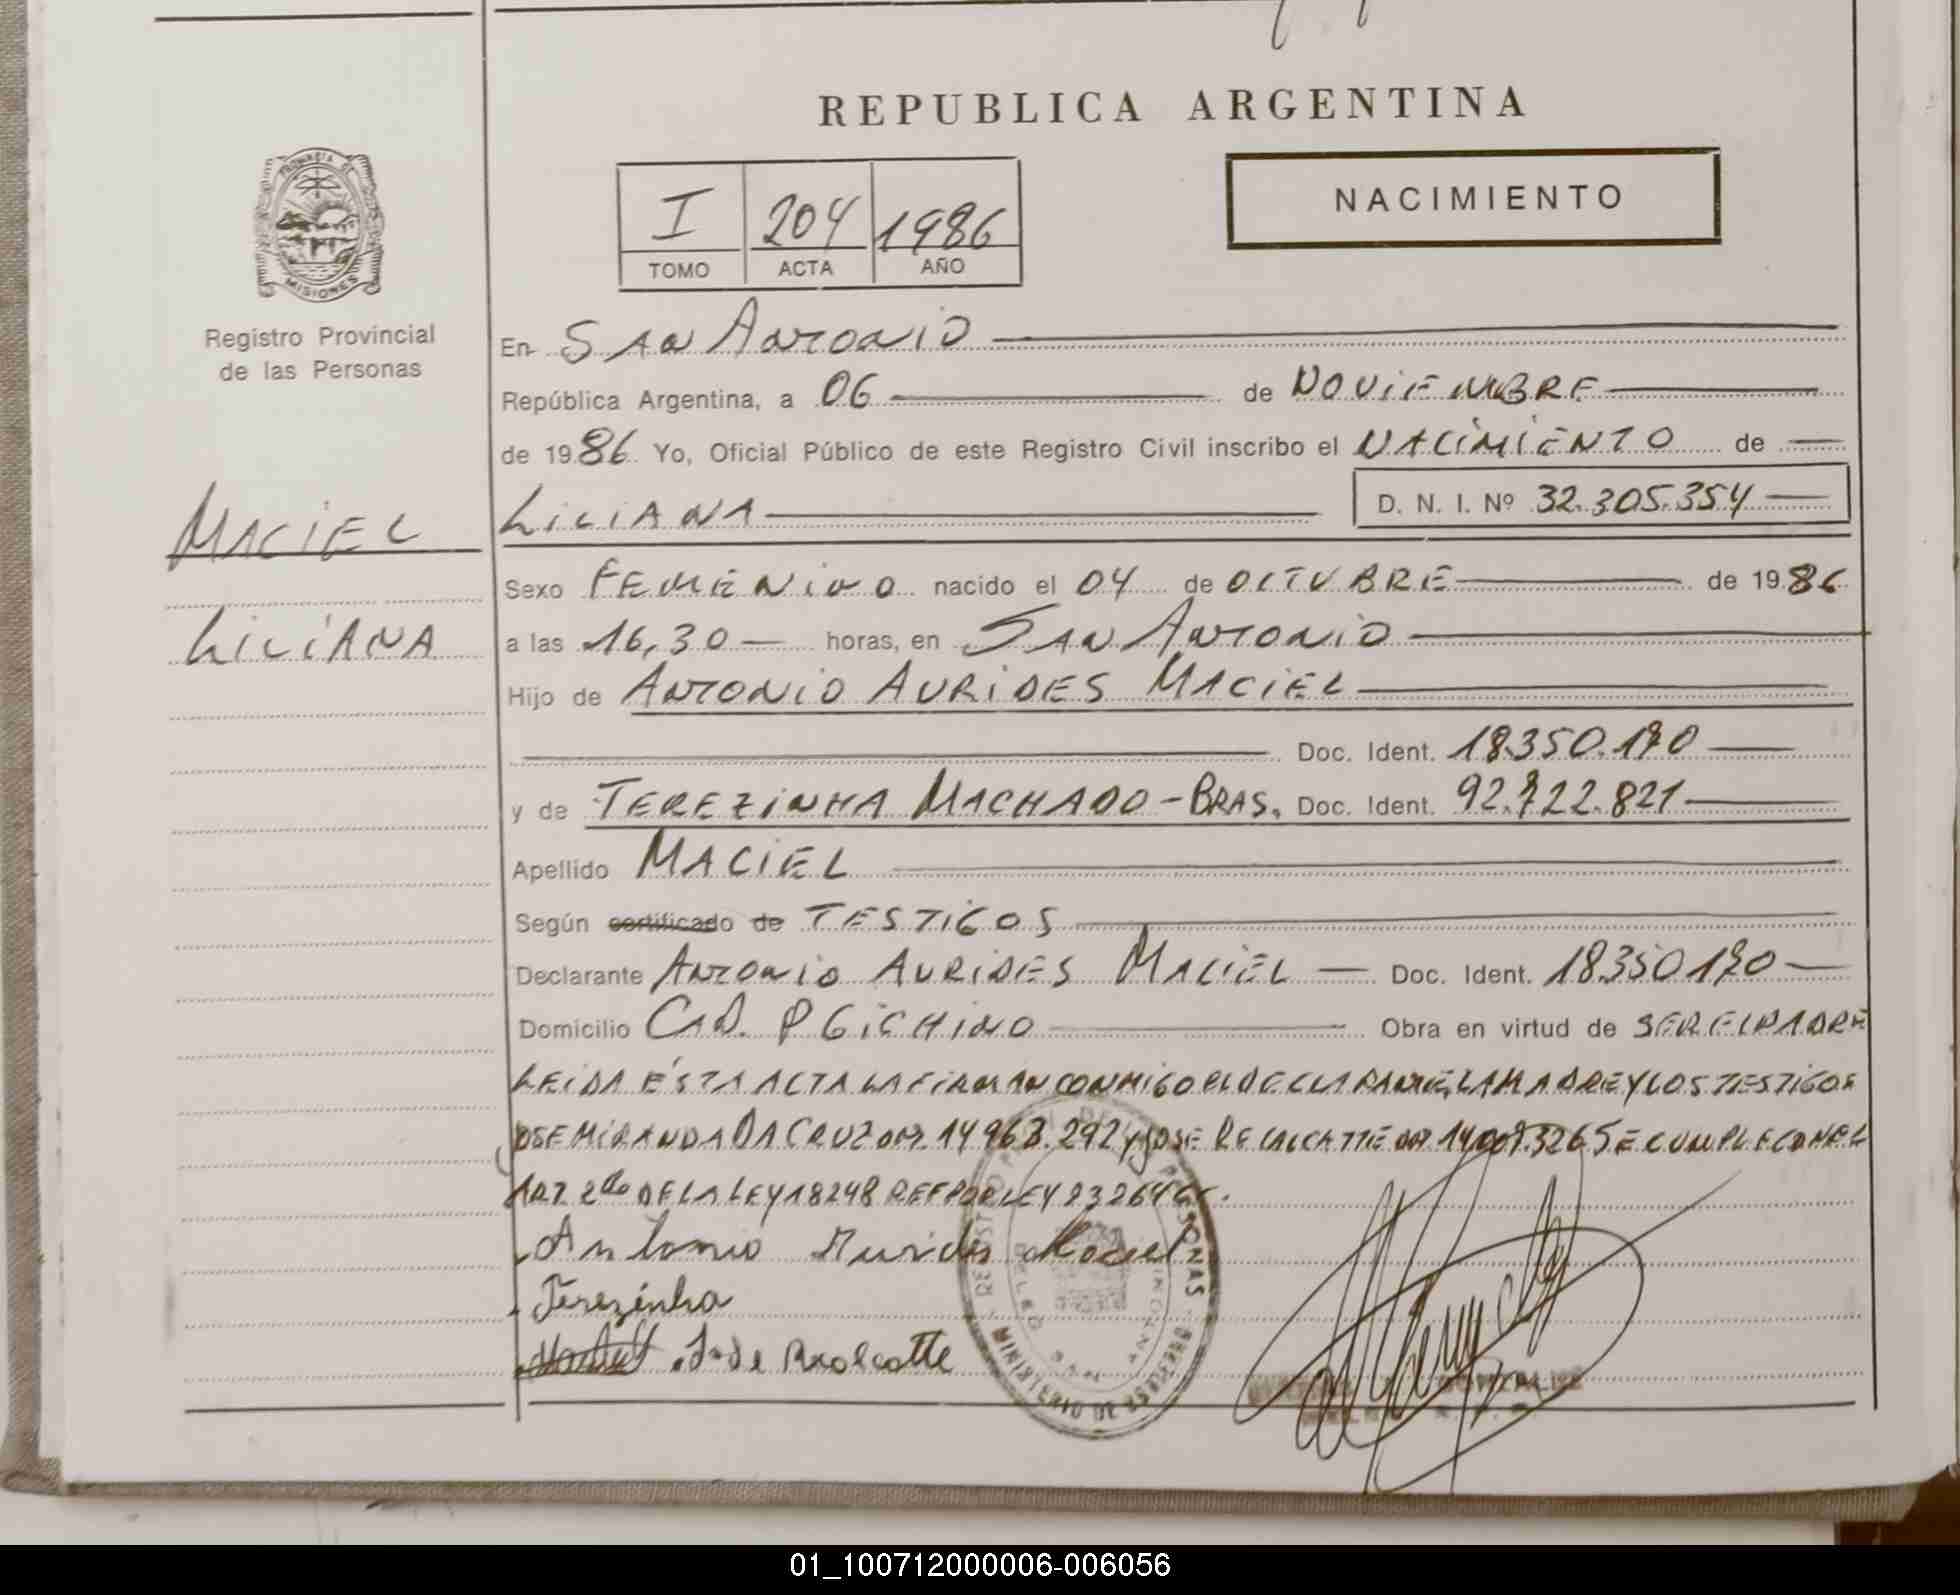 REPUBLICA ARGENTINA
NACIMIENTO
I 204 1986
TOMO ACTA AÑO
PROVINCIA DE
MISIONES
Registro Provincial
de las Personas
MACIEL
LILIANA
En SAN ANTONIO
República Argentina, a 06 de NOVIEMBRE
de 1986 Yo, Oficial Público de este Registro Civil inscribo el NACIMIENTO de
LILIANA D. N. I. Nº 32.305.354
Sexo FEMENINO nacido el 04 de OCTUBRE de 1986
a las 16,30 horas, en SAN ANTONIO
Hijo de ANTONIO AURIDES MACIEL
Doc. Ident. 18.350.170
y de TEREZINHA MACHADO-BRAS. Doc. Ident. 92.722.821
Apellido MACIEL
Según certificado de TESTIGOS
Declarante ANTONIO AURIDES MACIEL Doc. Ident. 18.350.170
Domicilio CAD. PGICHINO Obra en virtud de SER EL PADRE
LEIDA ÉSTA ACTA LA FIRMAN CONMIGO EL DECLARANTE, LA MADRE Y LOS TESTIGOS
JOSE MIRANDA DA CRUZ 14.963.292 y JOSE RECALCATTE SE CUMPLE CON EL
ART 2do DE LA LEY 18248 REF POR LEY 23264
Antonio Aurides Maciel
Terezinha
REGISTRO DE PERSONAS
SAN ANTONIO
MINISTERIO DE
01_100712000006-006056